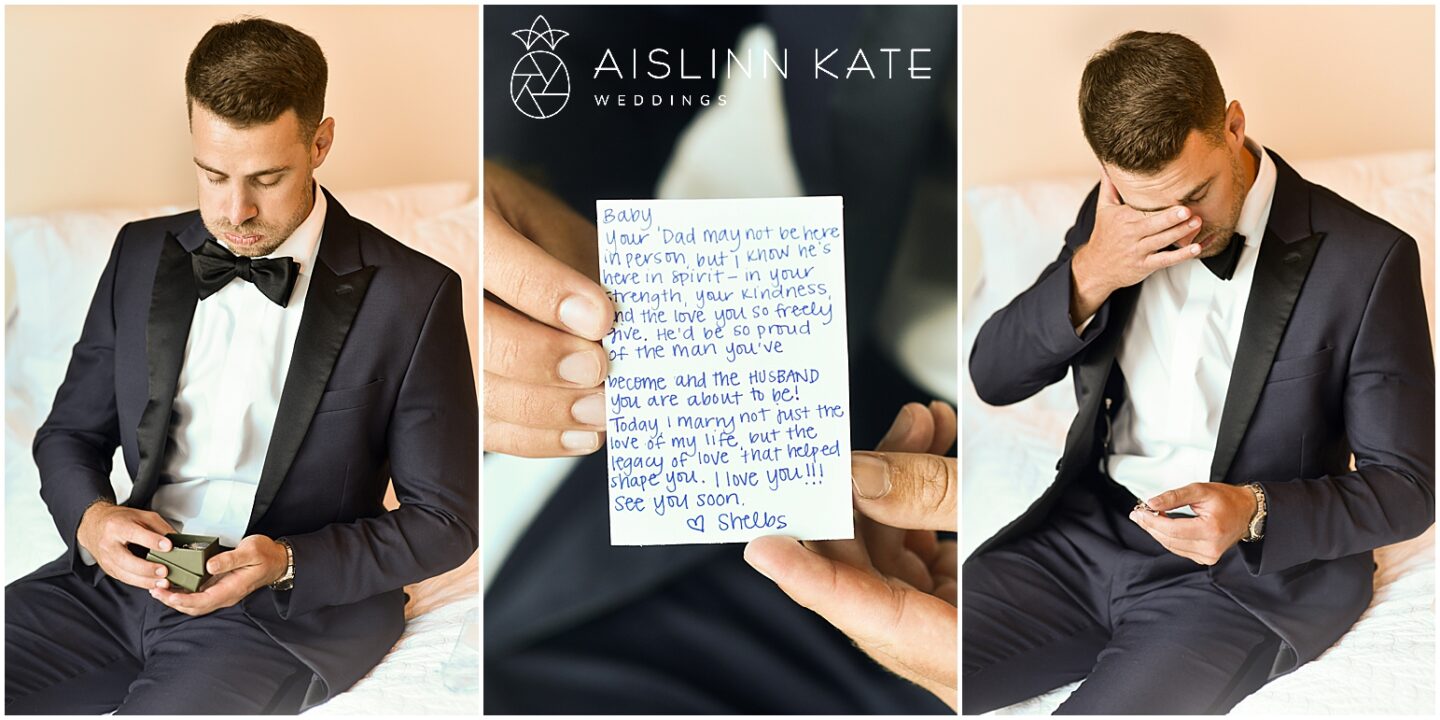 AISLINN KATE
WEDDINGS
Baby
Your Dad may not be here
in person, but I know he's
here in spirit – in your
strength, your kindness,
and the love you so freely
give. He'd be so proud
of the man you've
become and the HUSBAND
you are about to be!
Today I marry not just the
love of my life, but the
legacy of love that helped
shape you. I love you!!!
See you soon.
♡ Shelbs